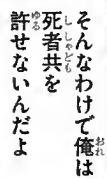 そんなわけで俺は
死者共を
許せないんだよ